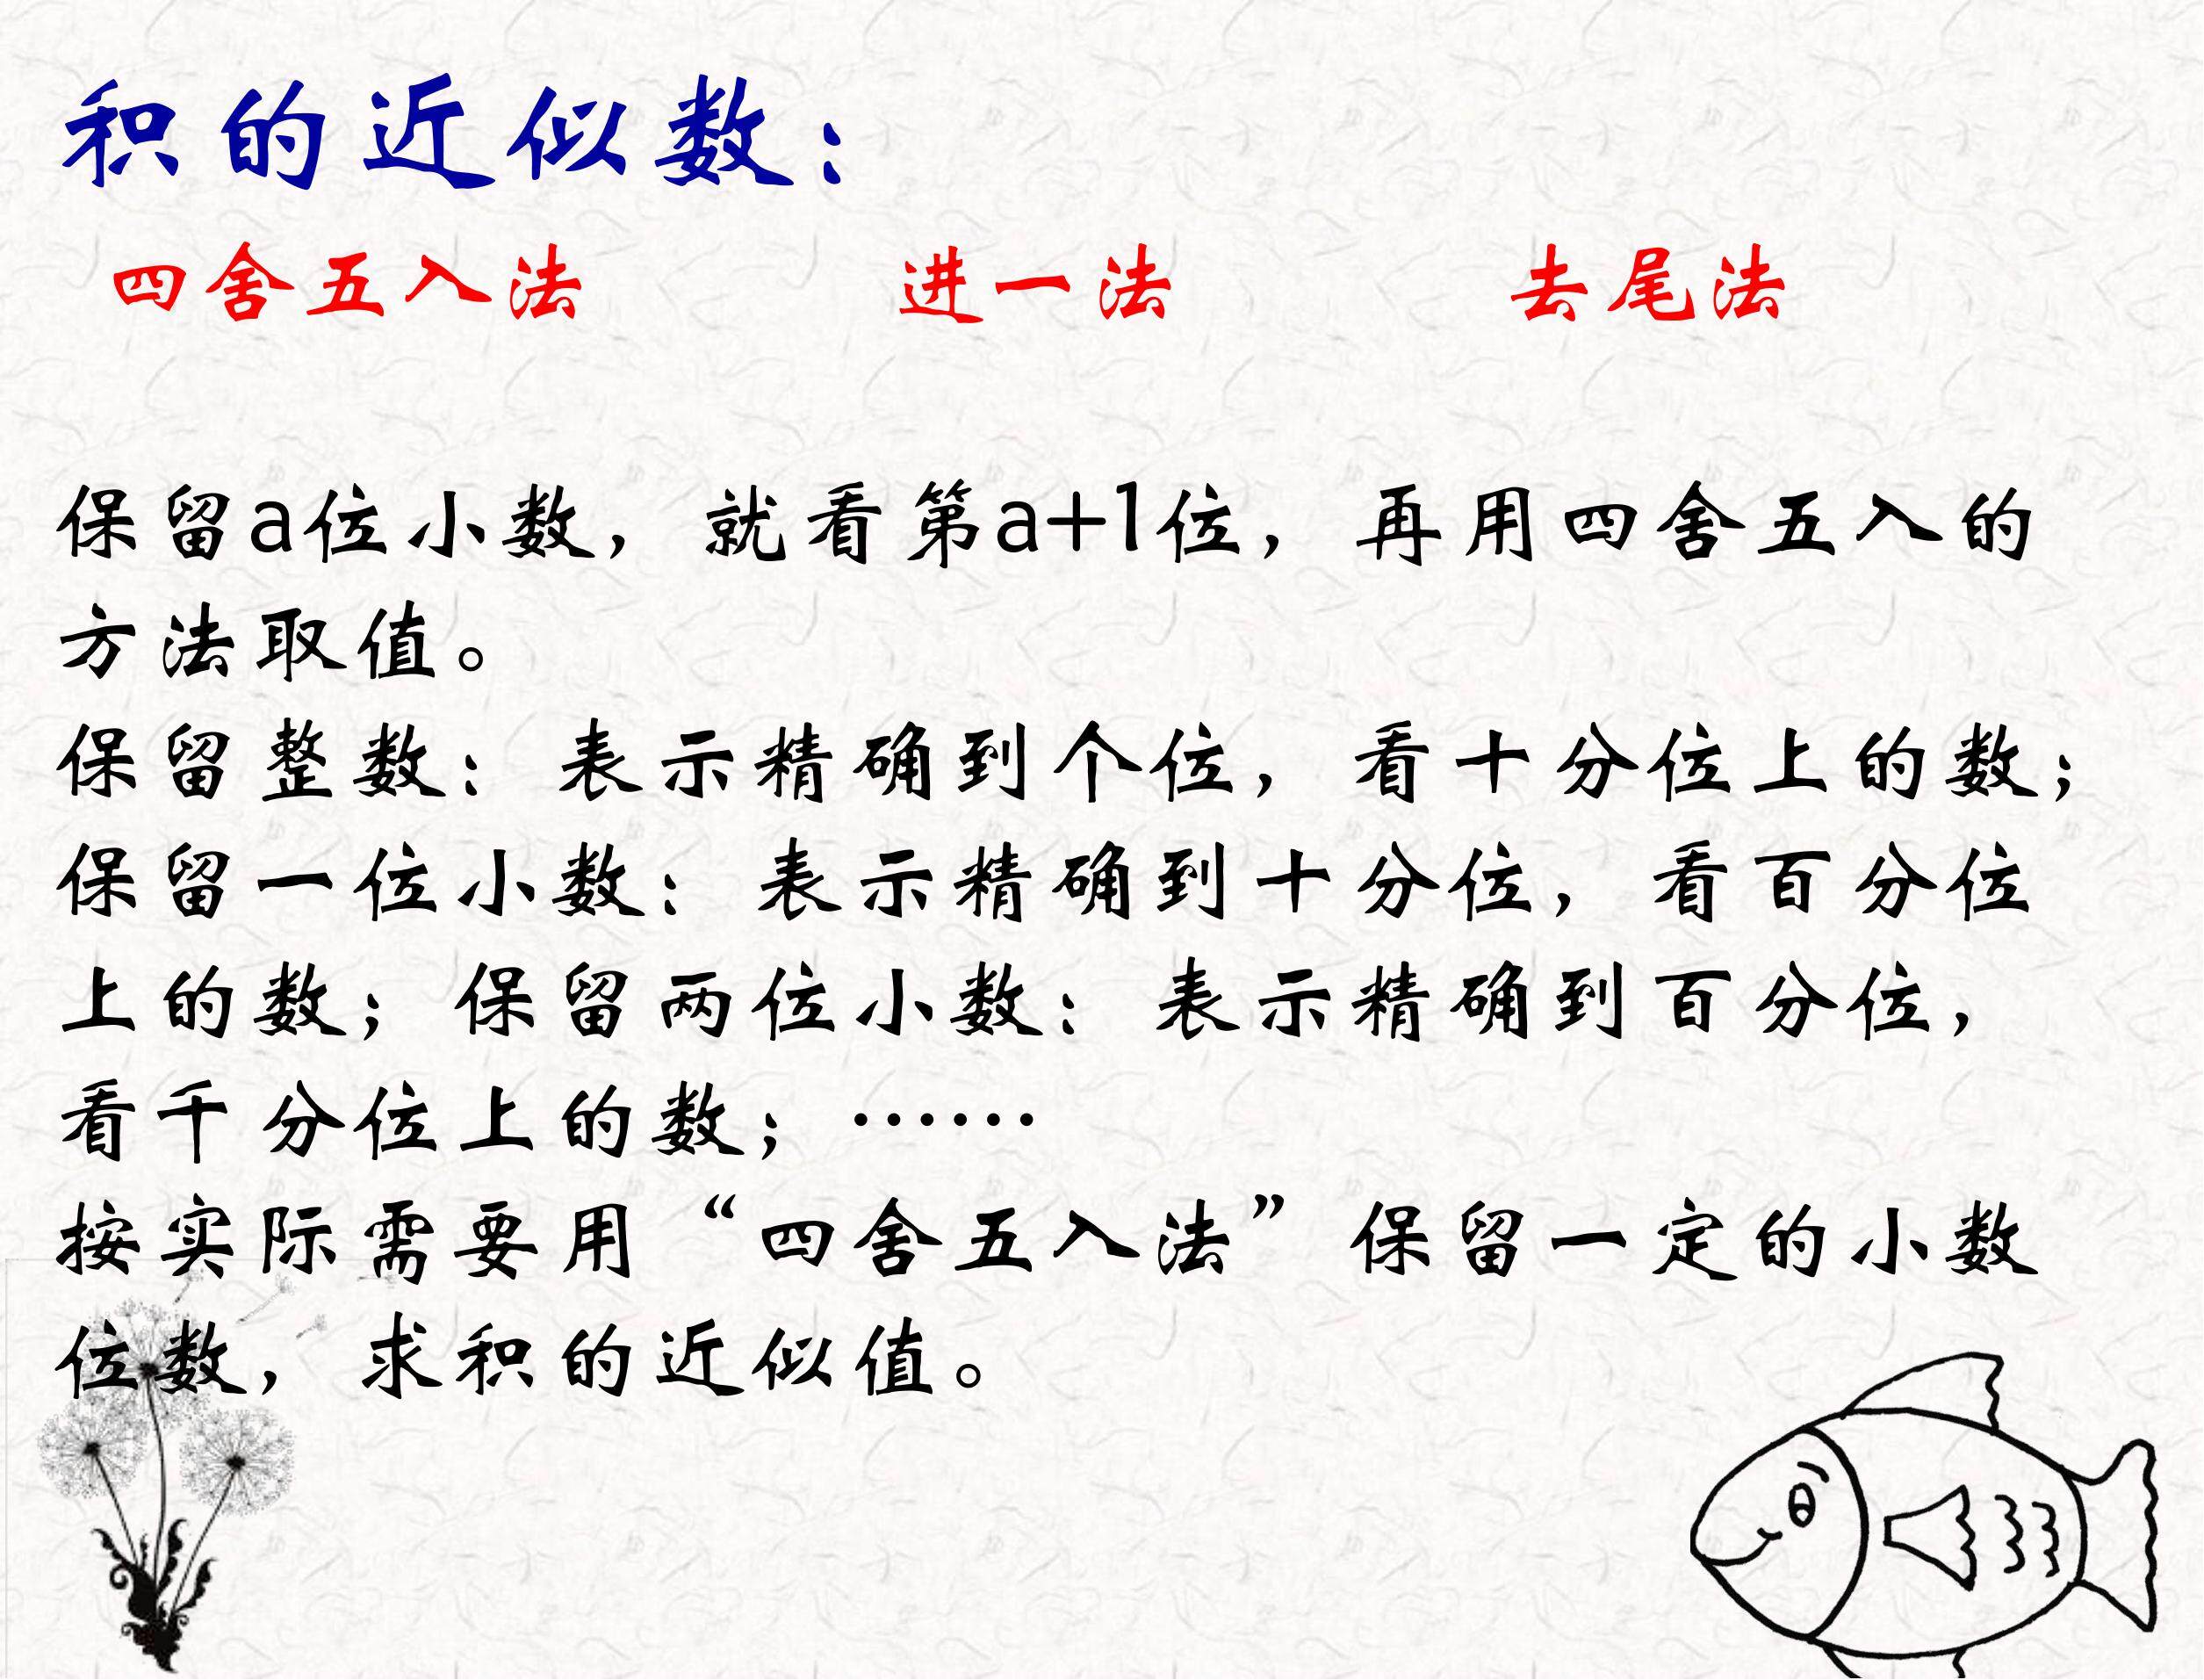 积的近似数：
四舍五入法 进一法 去尾法
保留a位小数，就看第a+1位，再用四舍五入的
方法取值。
保留整数：表示精确到个位，看十分位上的数；
保留一位小数：表示精确到十分位，看百分位
上的数；保留两位小数：表示精确到百分位，
看千分位上的数；……
按实际需要用“四舍五入法”保留一定的小数
位数，求积的近似值。